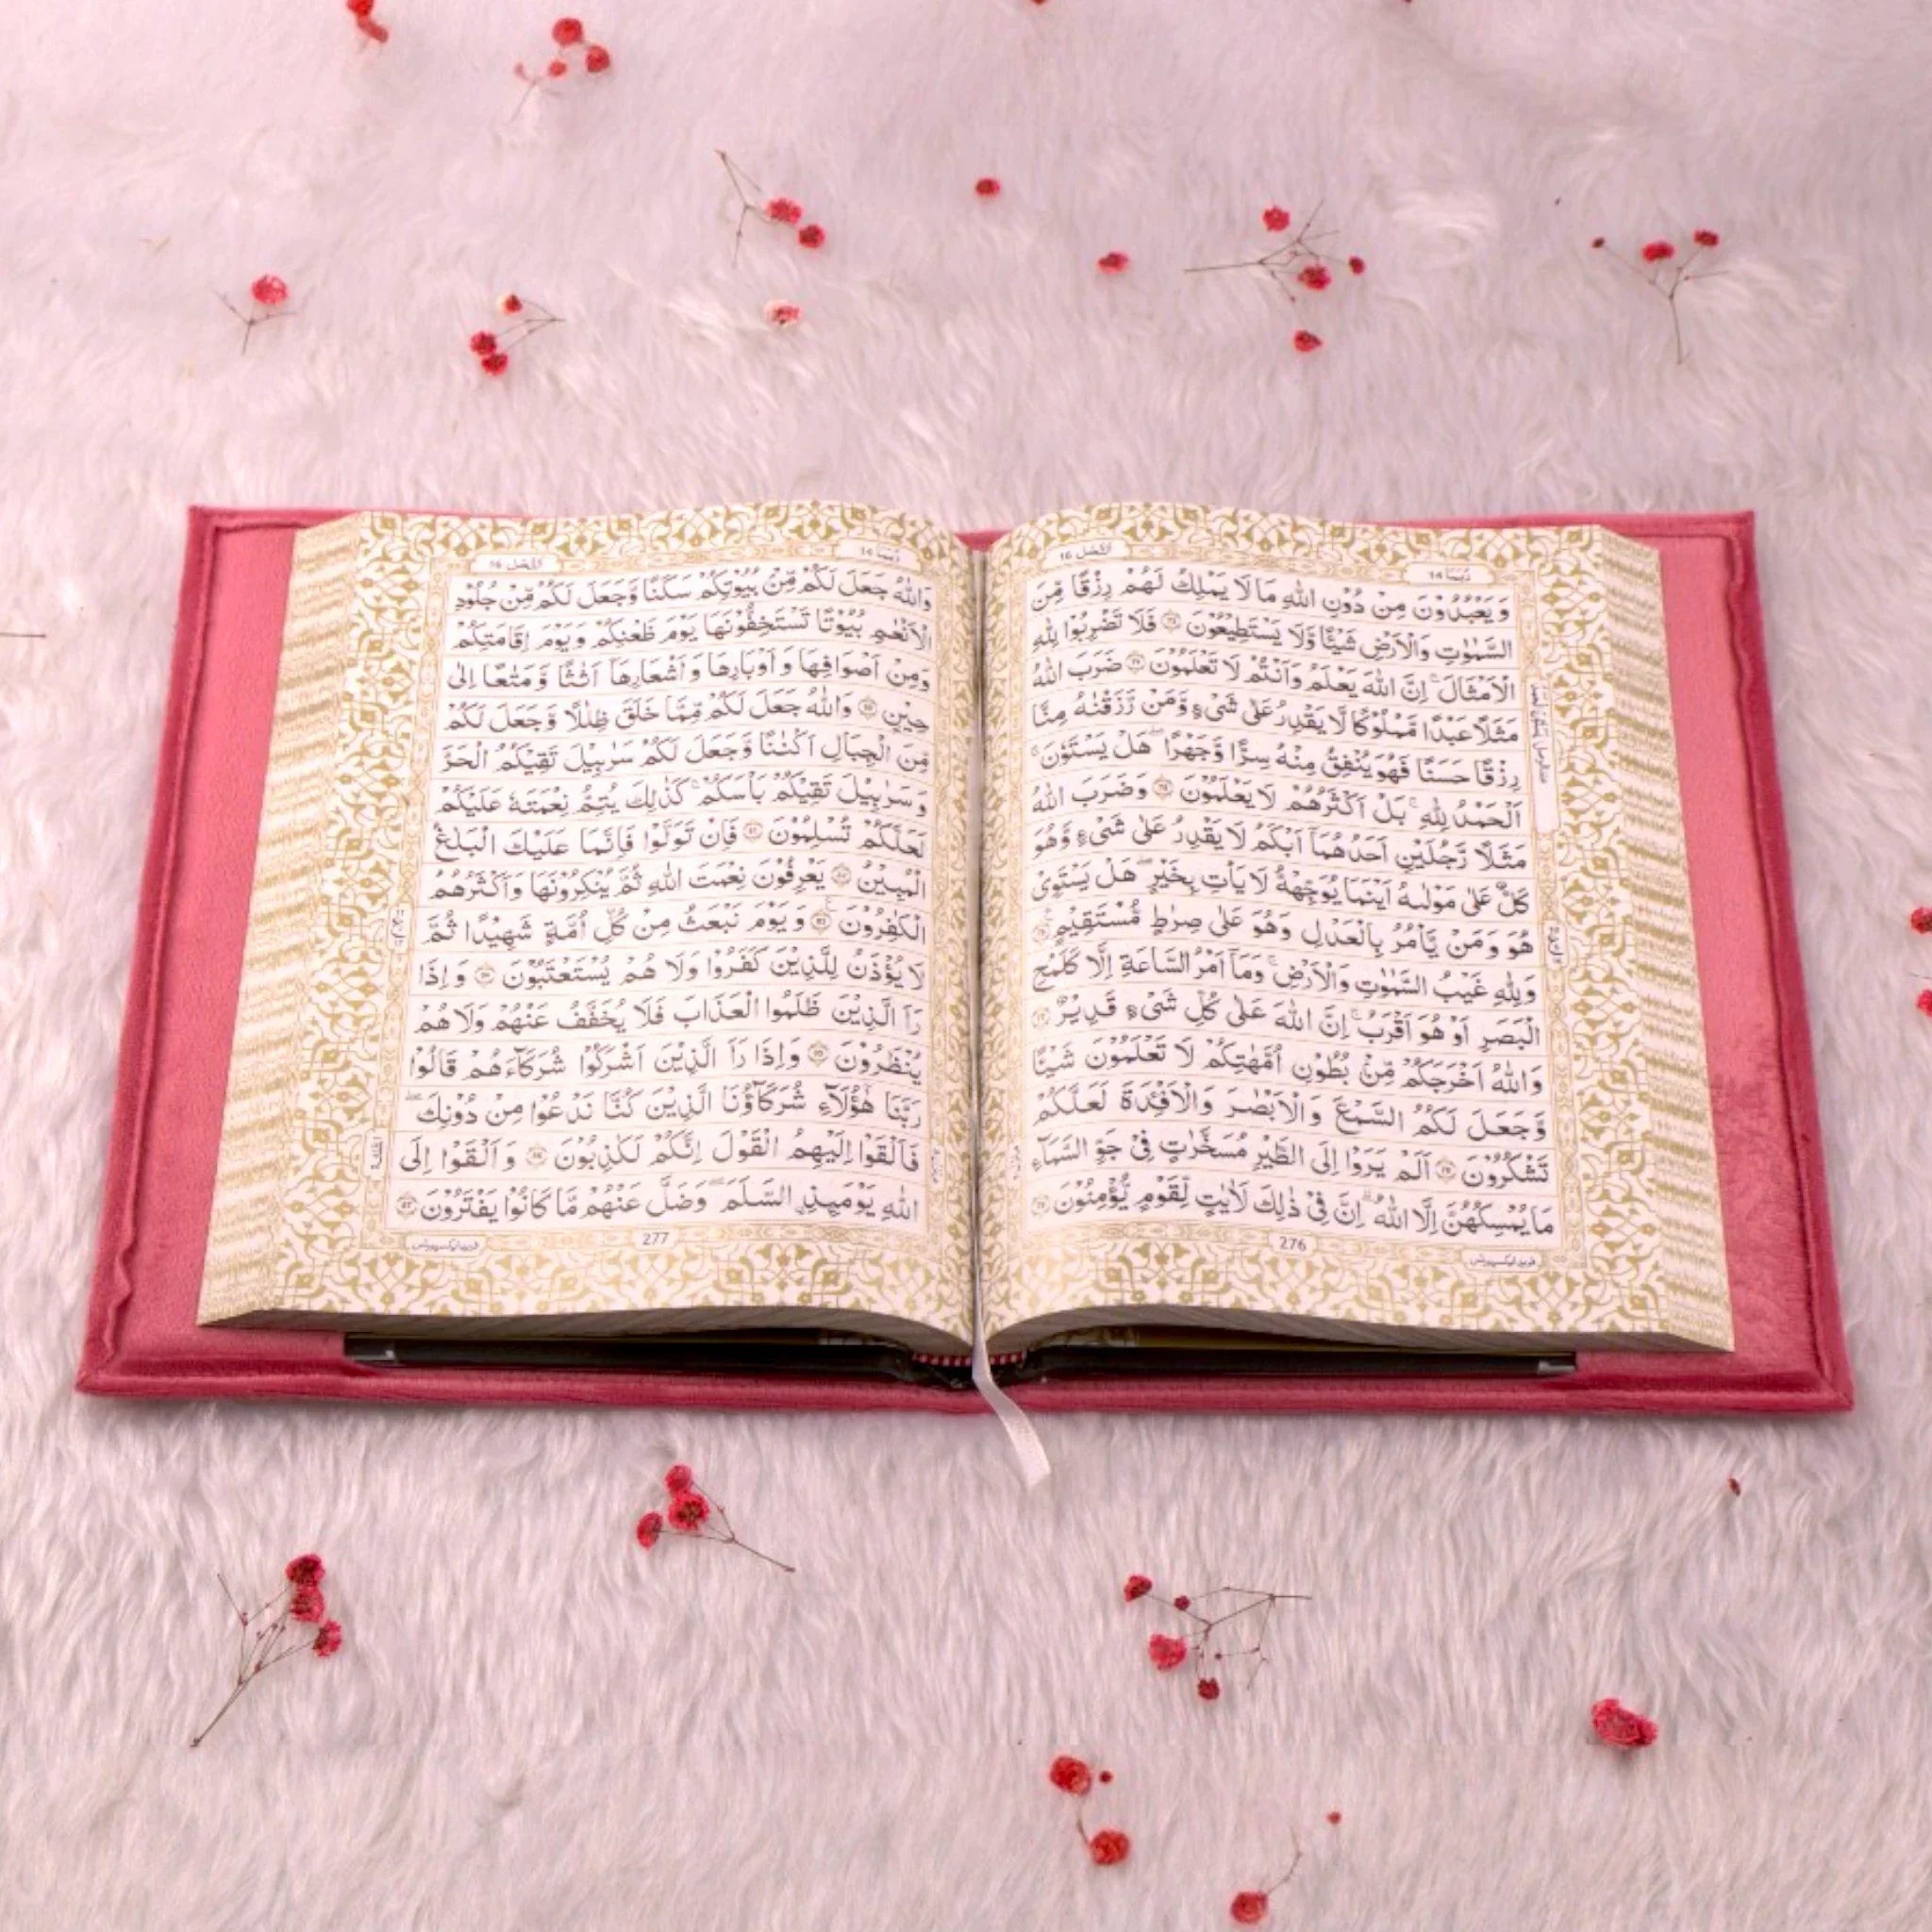 النحل 16
ربما 14
وَيَعْبُدُوْنَ مِنْ دُوْنِ اللّٰهِ مَا لَا يَمْلِكُ لَهُمْ رِزْقًا مِّنَ
السَّمٰوٰتِ وَالْاَرْضِ شَيْـًٔا وَّلَا يَسْتَطِيْعُوْنَ ۝٧٣ فَلَا تَضْرِبُوْا لِلّٰهِ
الْاَمْثَالَ ؕ اِنَّ اللّٰهَ يَعْلَمُ وَاَنْتُمْ لَا تَعْلَمُوْنَ ۝٧٤ ضَرَبَ اللّٰهُ
مَثَلًا عَبْدًا مَّمْلُوْكًا لَّا يَقْدِرُ عَلٰى شَیْءٍ وَّمَنْ رَّزَقْنٰهُ مِنَّا
رِزْقًا حَسَنًا فَهُوَ يُنْفِقُ مِنْهُ سِرًّا وَّجَهْرًا ؕ هَلْ يَسْتَوٗنَ ؕ
اَلْحَمْدُ لِلّٰهِ ؕ بَلْ اَكْثَرُهُمْ لَا يَعْلَمُوْنَ ۝٧٥ وَضَرَبَ اللّٰهُ
مَثَلًا رَّجُلَيْنِ اَحَدُهُمَاۤ اَبْكَمُ لَا يَقْدِرُ عَلٰى شَیْءٍ وَّهُوَ
كَلٌّ عَلٰى مَوْلٰىهُ اَيْنَمَا يُوَجِّهْهُّ لَا يَاْتِ بِخَيْرٍ ؕ هَلْ يَسْتَوِیْ
هُوَ وَمَنْ يَّاْمُرُ بِالْعَدْلِ وَهُوَ عَلٰى صِرٰطٍ مُّسْتَقِيْمٍ ۝٧٦
وَلِلّٰهِ غَيْبُ السَّمٰوٰتِ وَالْاَرْضِ ؕ وَمَاۤ اَمْرُ السَّاعَةِ اِلَّا كَلَمْحِ
الْبَصَرِ اَوْ هُوَ اَقْرَبُ ؕ اِنَّ اللّٰهَ عَلٰى كُلِّ شَیْءٍ قَدِيْرٌ ۝٧٧
وَاللّٰهُ اَخْرَجَكُمْ مِّنْۢ بُطُوْنِ اُمَّهٰتِكُمْ لَا تَعْلَمُوْنَ شَيْـًٔا
وَّجَعَلَ لَكُمُ السَّمْعَ وَالْاَبْصٰرَ وَالْاَفْـِٕدَةَ لَعَلَّكُمْ
تَشْكُرُوْنَ ۝٧٨ اَلَمْ يَرَوْا اِلَى الطَّيْرِ مُسَخَّرٰتٍ فِیْ جَوِّ السَّمَآءِ
مَا يُمْسِكُهُنَّ اِلَّا اللّٰهُ ؕ اِنَّ فِیْ ذٰلِكَ لَاٰيٰتٍ لِّقَوْمٍ يُّؤْمِنُوْنَ ۝٧٩
276
النحل 16
ربما 14
وَاللّٰهُ جَعَلَ لَكُمْ مِّنْۢ بُيُوْتِكُمْ سَكَنًا وَّجَعَلَ لَكُمْ مِّنْ جُلُوْدِ
الْاَنْعٰمِ بُيُوْتًا تَسْتَخِفُّوْنَهَا يَوْمَ ظَعْنِكُمْ وَيَوْمَ اِقَامَتِكُمْ
وَمِنْ اَصْوَافِهَا وَاَوْبَارِهَا وَاَشْعَارِهَاۤ اَثٰثًا وَّمَتٰعًا اِلٰى
حِيْنٍ ۝٨٠ وَاللّٰهُ جَعَلَ لَكُمْ مِّمَّا خَلَقَ ظِلٰلًا وَّجَعَلَ لَكُمْ
مِّنَ الْجِبَالِ اَكْنٰنًا وَّجَعَلَ لَكُمْ سَرٰبِيْلَ تَقِيْكُمُ الْحَرَّ
وَسَرٰبِيْلَ تَقِيْكُمْ بَاْسَكُمْ ؕ كَذٰلِكَ يُتِمُّ نِعْمَتَهٗ عَلَيْكُمْ
لَعَلَّكُمْ تُسْلِمُوْنَ ۝٨١ فَاِنْ تَوَلَّوْا فَاِنَّمَا عَلَيْكَ الْبَلٰغُ
الْمُبِيْنُ ۝٨٢ يَعْرِفُوْنَ نِعْمَتَ اللّٰهِ ثُمَّ يُنْكِرُوْنَهَا وَاَكْثَرُهُمُ
الْكٰفِرُوْنَ ۝٨٣ وَيَوْمَ نَبْعَثُ مِنْ كُلِّ اُمَّةٍ شَهِيْدًا ثُمَّ
لَا يُؤْذَنُ لِلَّذِيْنَ كَفَرُوْا وَلَا هُمْ يُسْتَعْتَبُوْنَ ۝٨٤ وَاِذَا
رَاَ الَّذِيْنَ ظَلَمُوا الْعَذَابَ فَلَا يُخَفَّفُ عَنْهُمْ وَلَا هُمْ
يُنْظَرُوْنَ ۝٨٥ وَاِذَا رَاَ الَّذِيْنَ اَشْرَكُوْا شُرَكَآءَهُمْ قَالُوْا
رَبَّنَا هٰۤؤُلَآءِ شُرَكَآؤُنَا الَّذِيْنَ كُنَّا نَدْعُوْا مِنْ دُوْنِكَ ۚ
فَاَلْقَوْا اِلَيْهِمُ الْقَوْلَ اِنَّكُمْ لَكٰذِبُوْنَ ۝٨٦ وَاَلْقَوْا اِلَى
اللّٰهِ يَوْمَىِٕذِ ِۨالسَّلَمَ وَضَلَّ عَنْهُمْ مَّا كَانُوْا يَفْتَرُوْنَ ۝٨٧
277